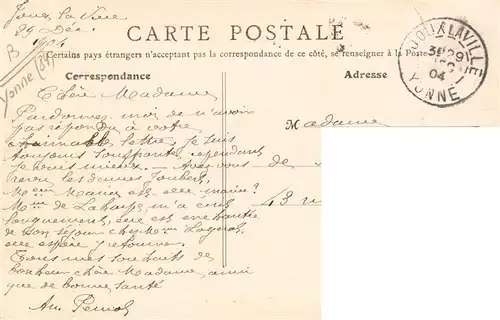 Joux la Ville
29 Déc.
1904
B
Yonne
CARTE POSTALE
Certains pays étrangers n'acceptant pas la correspondance de ce côté, se renseigner à la Poste
JOUX-LA-VILLE
29
04
YONNE
Correspondance
Adresse
Chère Madame
Pardonnez moi de n'avoir
pas répondu à votre
aimable lettre, je suis
toujours souffrante, cependant
je vais mieux. Avez vous
revu les dames Joubert,
Melle Marie est elle mariée?
Mme de Laharpe, m'a écrit
longuement, elle est enchantée
de son séjour chez Mme
elle espère y retourner
Tous mes souhaits de
bonheur chère Madame ainsi
que de bonne santé
Madame
de
43 r